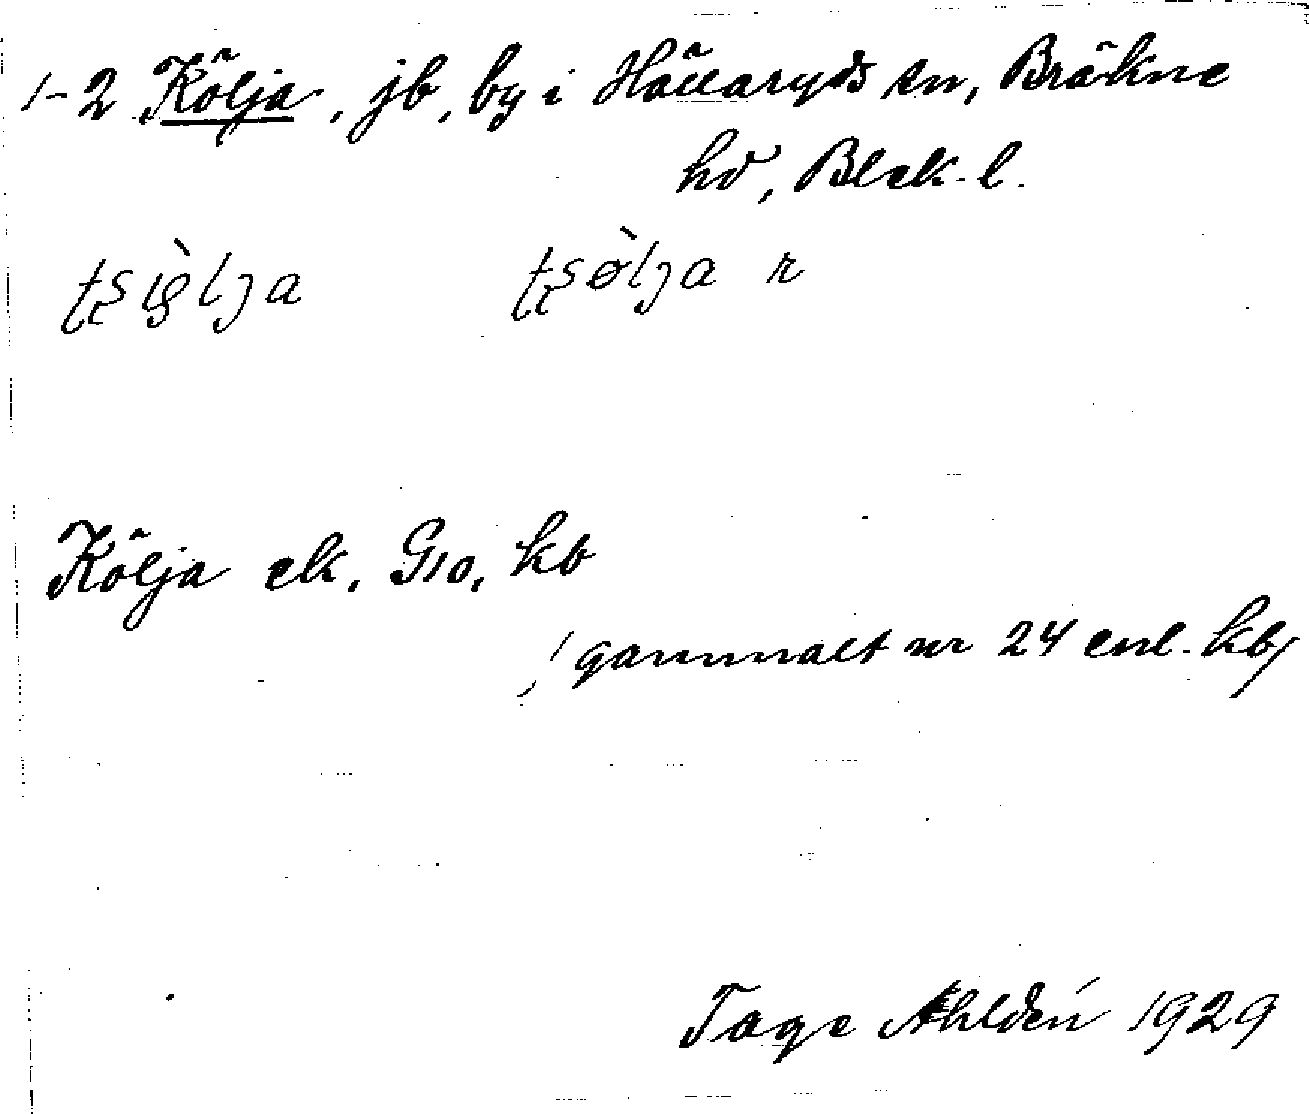 1-2 Kölja, jb, by i Hällaryds sn, Bräkne
hd, Blek. l.
Kölja ek. G10, kb
/gammalt nr 24 enl. kb/
Tage Ahldén 1929